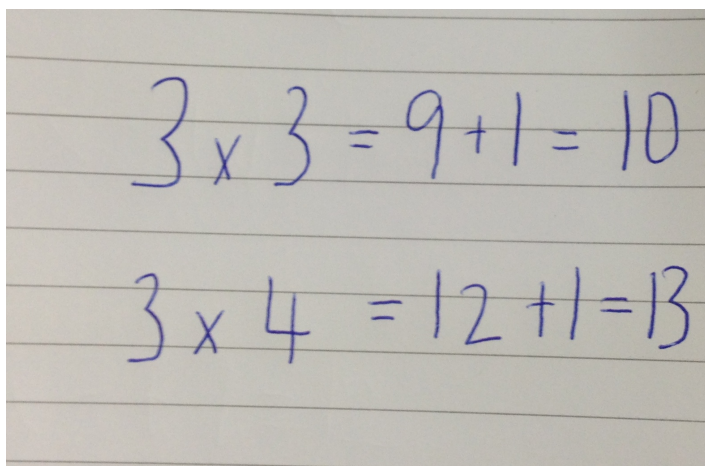 3 x 3 = 9 + 1 = 10
3 x 4 = 12 + 1 = 13